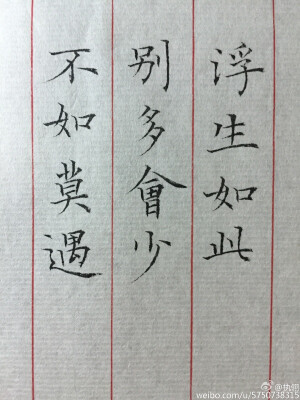 浮生如此
别多會少
不如莫遇
weibo.com/u/5750738315